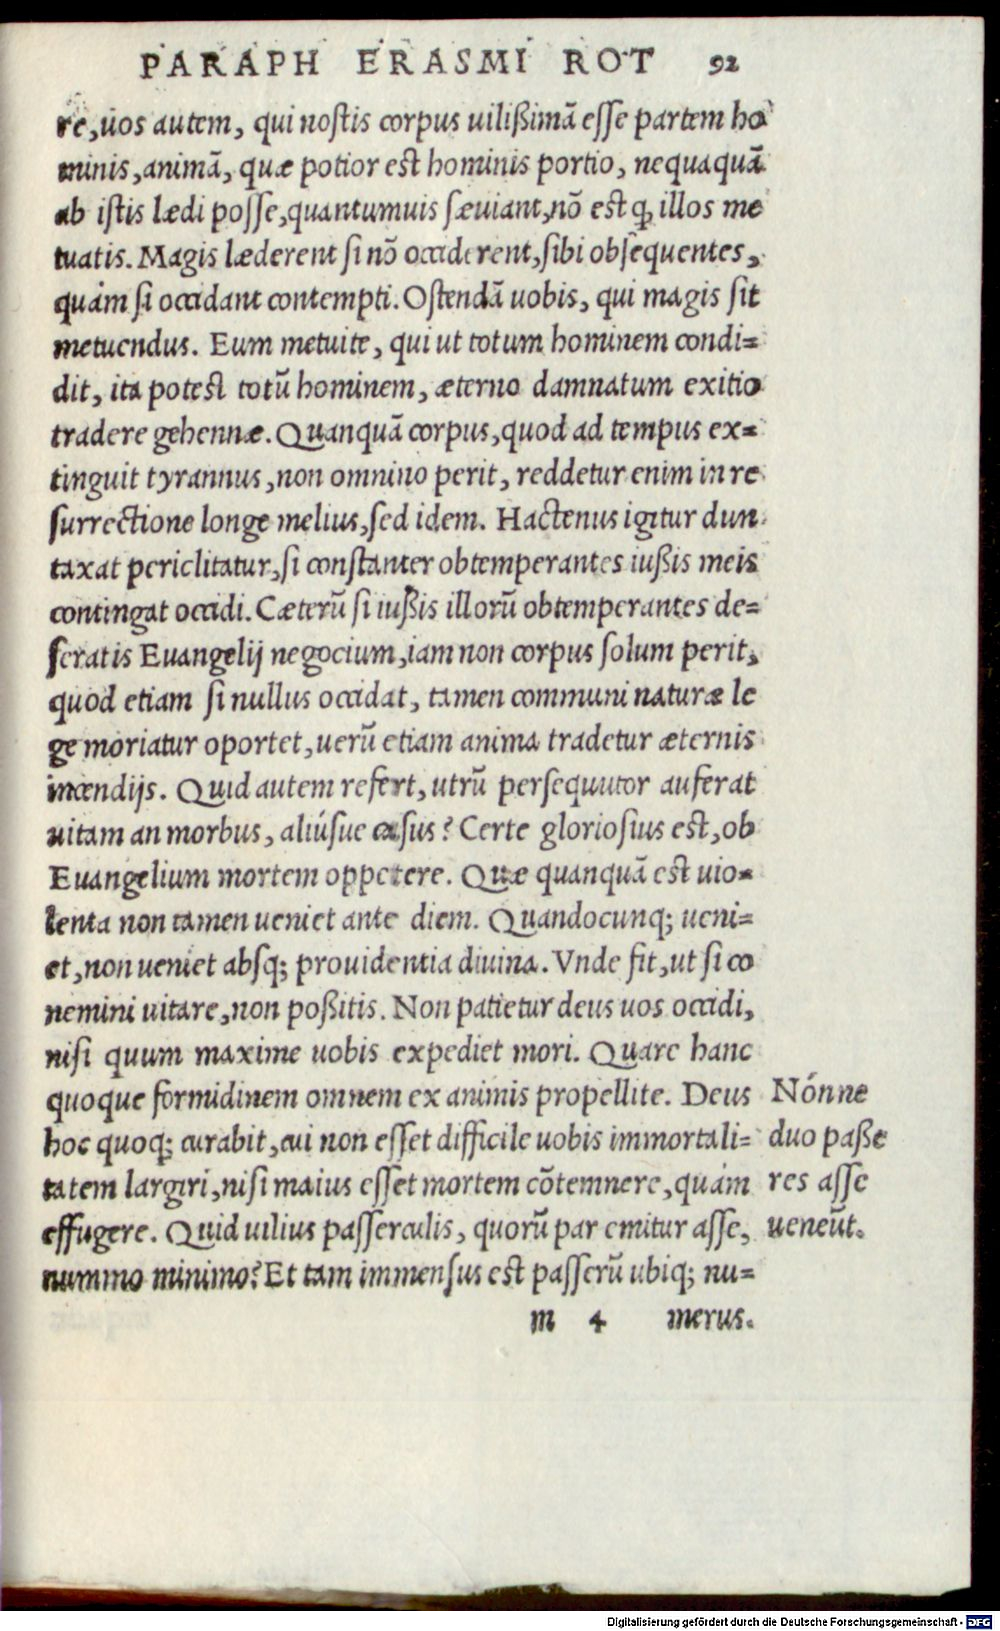 PARAPH ERASMI ROT 92
re, uos autem, qui nostis corpus uilißimā esse partem ho
minis, animā, quæ potior est hominis portio, nequaquā
ab istis lædi posse, quantumuis sæuiant, nō est ꝙ illos me
tuatis. Magis læderent si nō occiderent, sibi obsequentes,
quàm si occidant contempti. Ostendā uobis, qui magis sit
metuendus. Eum metuite, qui ut totum hominem condi=
dit, ita potest totū hominem, æterno damnatum exitio
tradere gehennæ. Quanquā corpus, quod ad tempus ex=
tinguit tyrannus, non omnino perit, reddetur enim in re
surrectione longe melius, sed idem. Hactenus igitur dun
taxat periclitatur, si constanter obtemperantes iußis meis
contingat occidi. Cæterū si iußis illorū obtemperantes de=
seratis Euangelij negocium, iam non corpus solum perit,
quod etiam si nullus occidat, tamen communi naturæ le
ge moriatur oportet, uerū etiam anima tradetur æternis
incendijs. Quid autem refert, utrū persequutor auferat
uitam an morbus, aliúsue casus? Certe gloriosius est, ob
Euangelium mortem oppetere. Quæ quanquā est uio=
lenta non tamen ueniet ante diem. Quandocunq; ueni=
et, non ueniet absq; prouidentia diuina. Vnde fit, ut si co
nemini uitare, non poßitis. Non patietur deus uos occidi,
nisi quum maxime uobis expediet mori. Quare hanc
quoque formidinem omnem ex animis propellite. Deus
hoc quoq; curabit, cui non esset difficile uobis immortali=
tatem largiri, nisi maius esset mortem cōtemnere, quàm
effugere. Quid uilius passerculis, quorū par emitur asse,
nummo minimo? Et tam immensus est passerū ubiq; nu=
m 4 merus.
Nónne
duo paße
res asse
ueneūt.
Digitalisierung gefördert durch die Deutsche Forschungsgemeinschaft - DFG